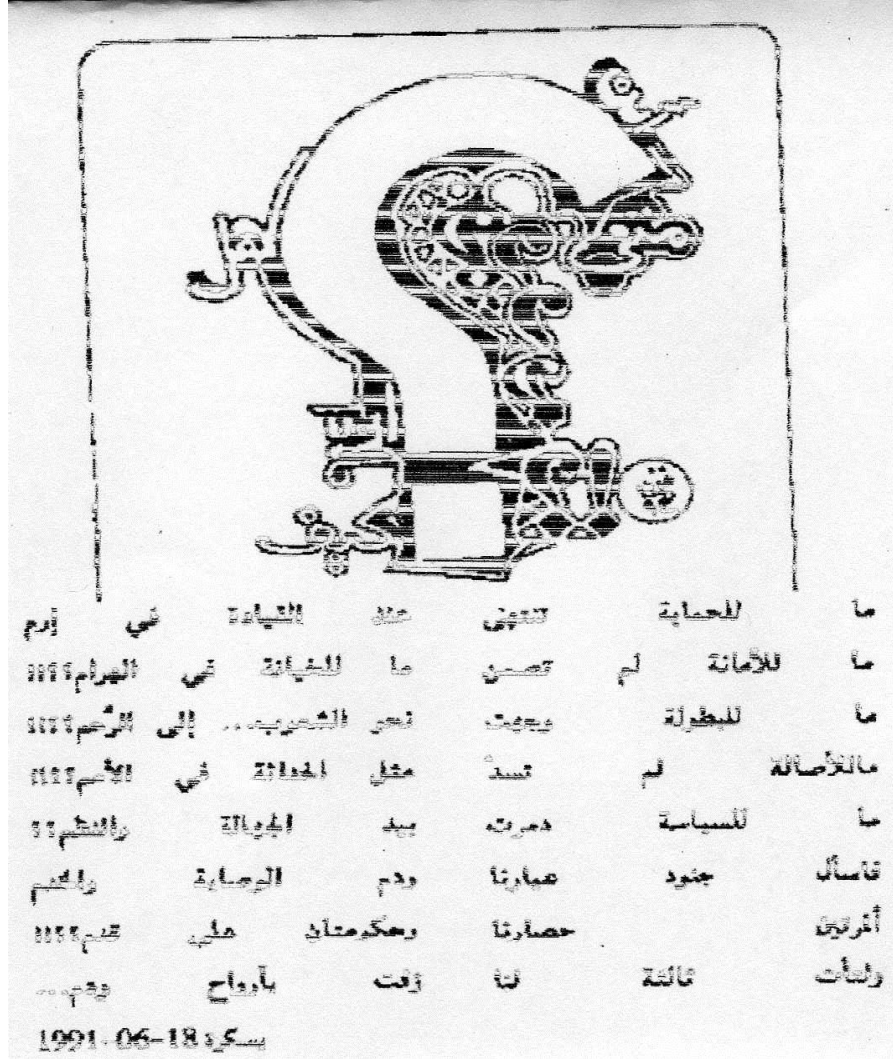 ما للحماية تنتهي عند القيادة في إرم
ما للأمانة لم تصن ما للخيانة في الهرام؟؟!!
ما للبطولة وجهت نحو الشعوب... إلى الرُّحم؟!!!
ماللأصالة لم تسدْ مثل الحداثة في الأمم؟!!!
ما للسياسة دمرت بيد الجهالة والنظم؟؟
فاسأل جنود ودم الوصاية
حصارنا وحكومتان على
ولتأت ثالثة لنا زفت بأرواح ودم...
بسكرة 18-06-1991